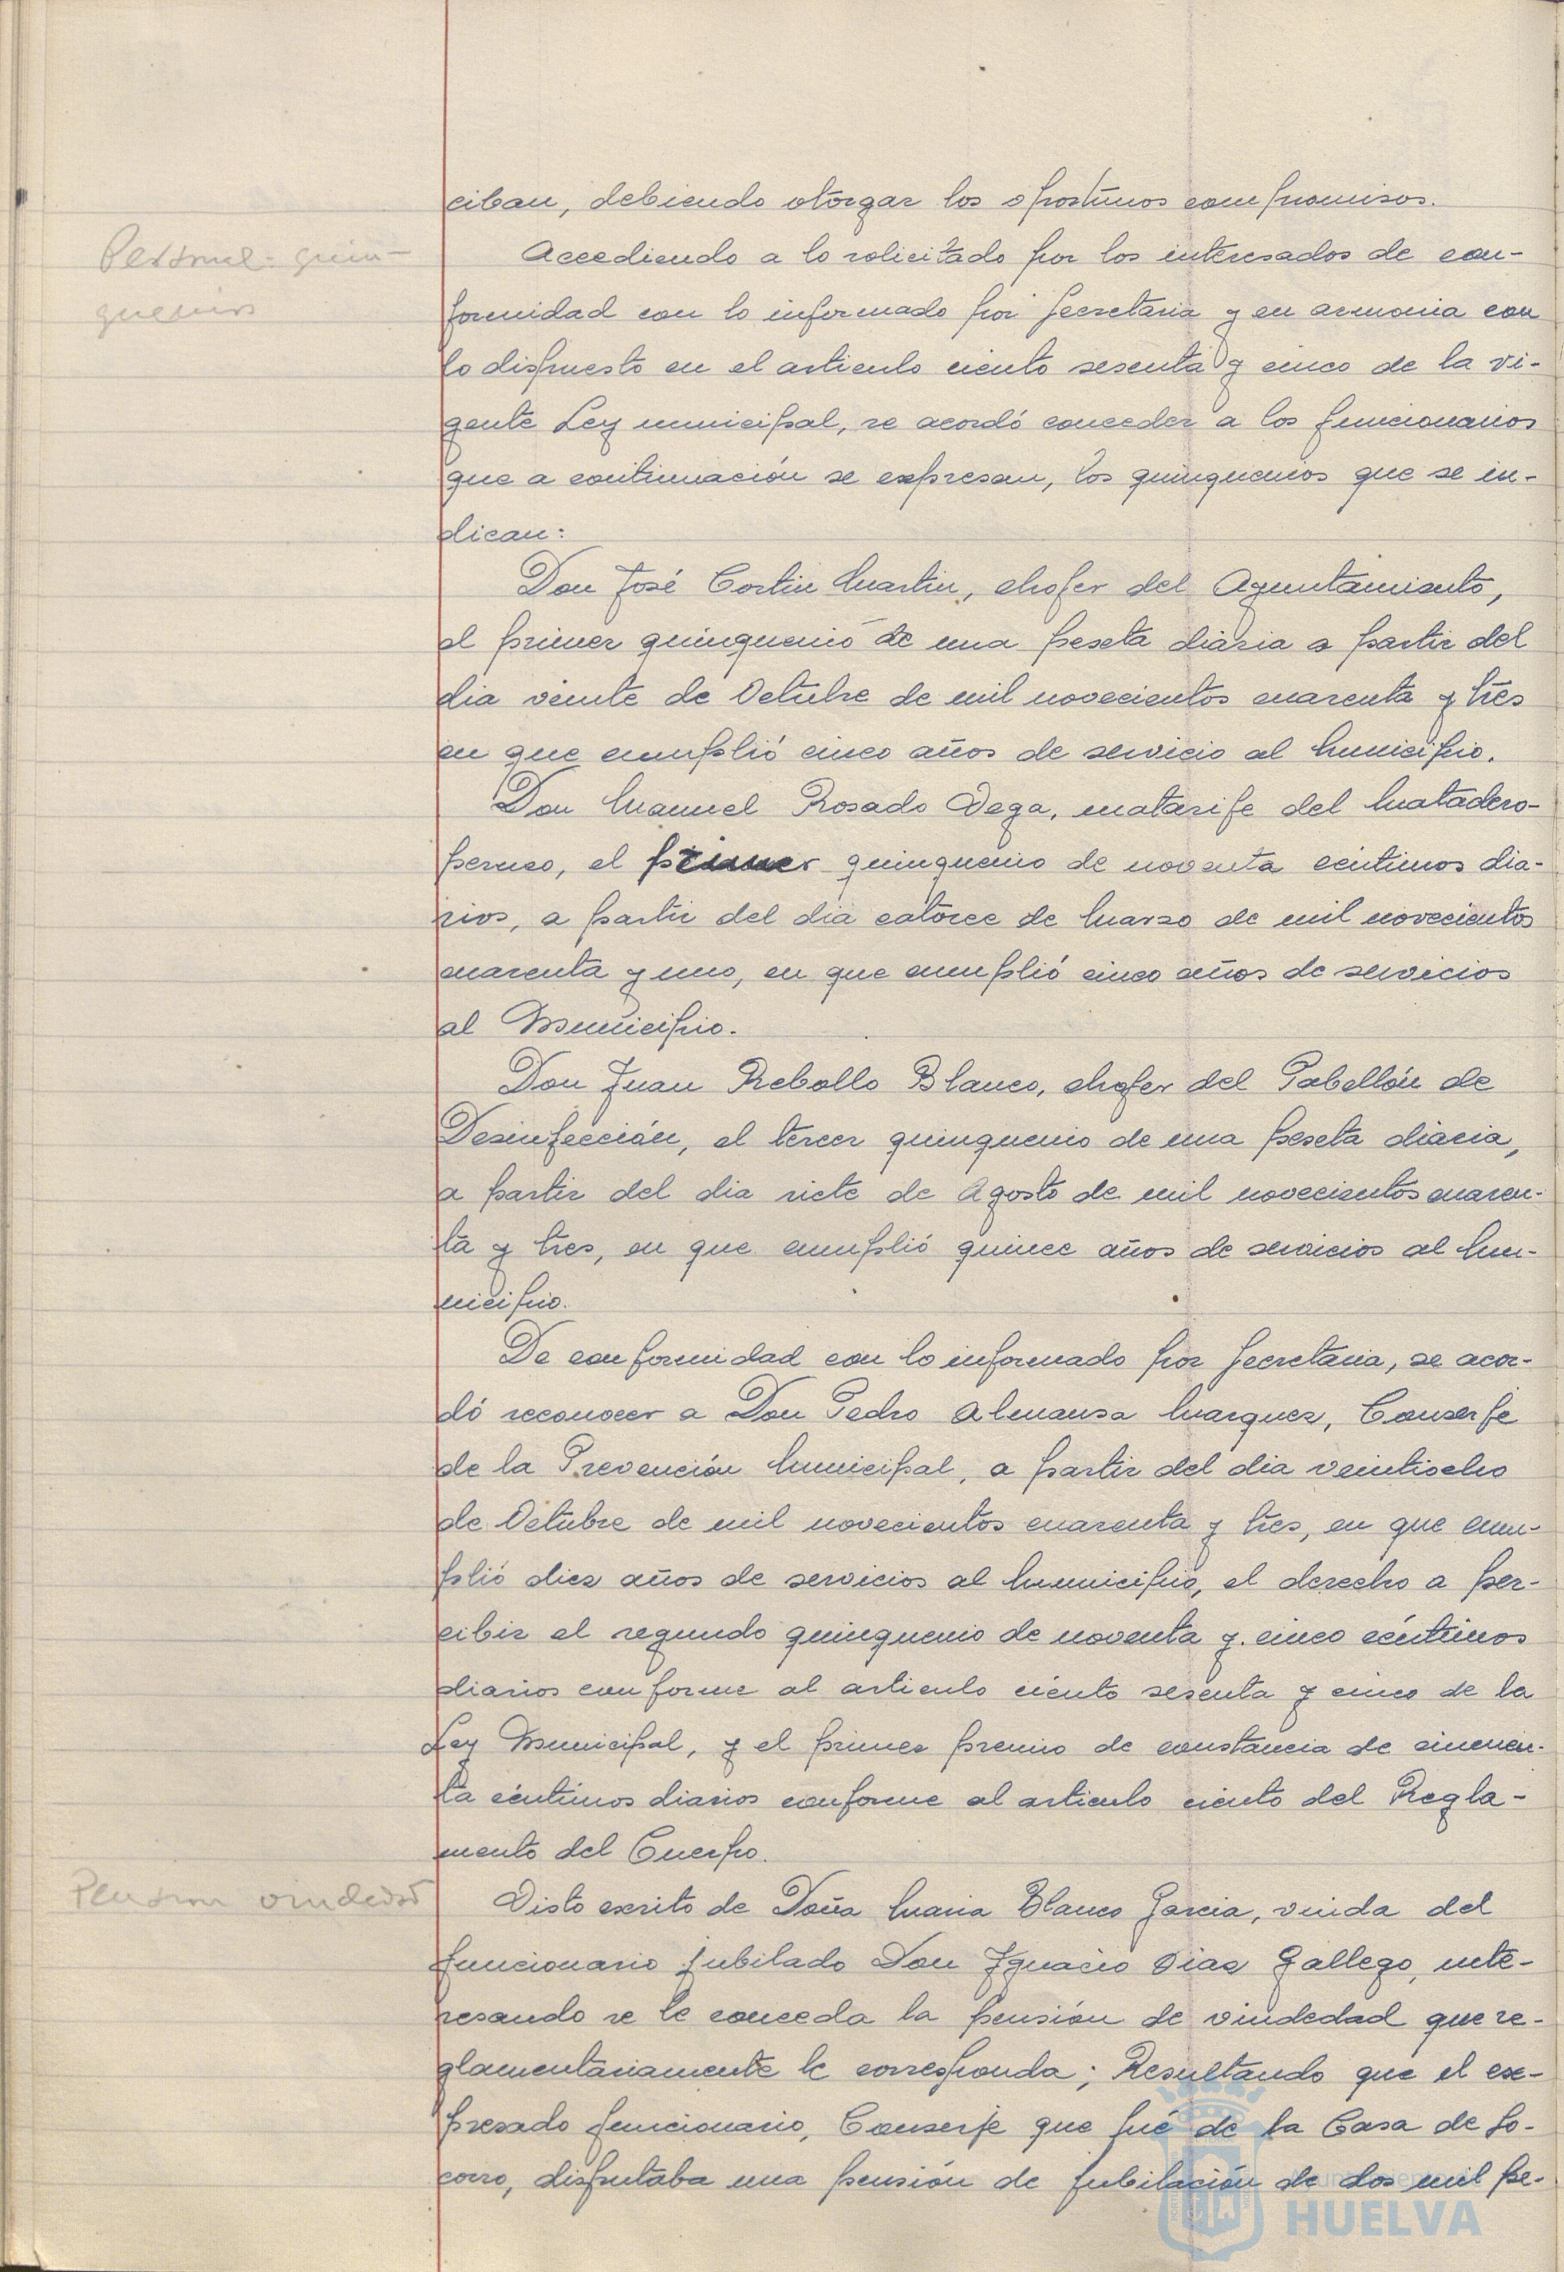 ciban, debiendo otorgar los oportunos compromisos.
Personal- quin-
quenios
Accediendo a lo solicitado por los interesados de con-
formidad con lo informado por Secretaria y en armonia con
lo dispuesto en el articulo ciento sesenta y cinco de la vi-
gente Ley municipal, se acordó conceder a los funcionarios
que a continuación se expresan, los quinquenios que se in-
dican:
Don José Cortin Martin, chofer del Ayuntamiento,
el primer quinquenio de una peseta diaria a partir del
dia veinte de Octubre de mil novecientos cuarenta y tres
en que cumplió cinco años de servicio al Municipio.
Don Manuel Rosado Vega, matarife del Matadero-
perneo, el primer quinquenio de noventa céntimos dia-
rios, a partir del dia catorce de Marzo de mil novecientos
cuarenta y uno, en que cumplió cinco años de servicios
al Municipio.
Don Juan Rebollo Blanco, chofer del Pabellón de
Desinfección, el tercer quinquenio de una peseta diaria,
a partir del dia siete de Agosto de mil novecientos cuaren-
ta y tres, en que cumplió quince años de servicios al Mu-
nicipio.
De conformidad con lo informado por Secretaria, se acor-
dó reconocer a Don Pedro Almansa Marquez, Conserje
de la Prevención Municipal, a partir del dia veintiocho
de Octubre de mil novecientos cuarenta y tres, en que cum-
plió diez años de servicios al Municipio, el derecho a per-
cibir el segundo quinquenio de noventa y cinco céntimos
diarios conforme al articulo ciento sesenta y cinco de la
Ley Municipal, y el primer premio de constancia de cincuen-
ta céntimos diarios conforme al articulo ciento del Regla-
mento del Cuerpo.
Pension viudedad
Visto escrito de Doña Maria Blanco Garcia, viuda del
funcionario jubilado Don Ignacio Diaz Gallego, inte-
resando se le conceda la pensión de viudedad que re-
glamentariamente le corresponda; Resultando que el ex-
presado funcionario, Conserje que fué de la Casa de So-
corro, disfrutaba una pensión de jubilación de dos mil pe-
HUELVA